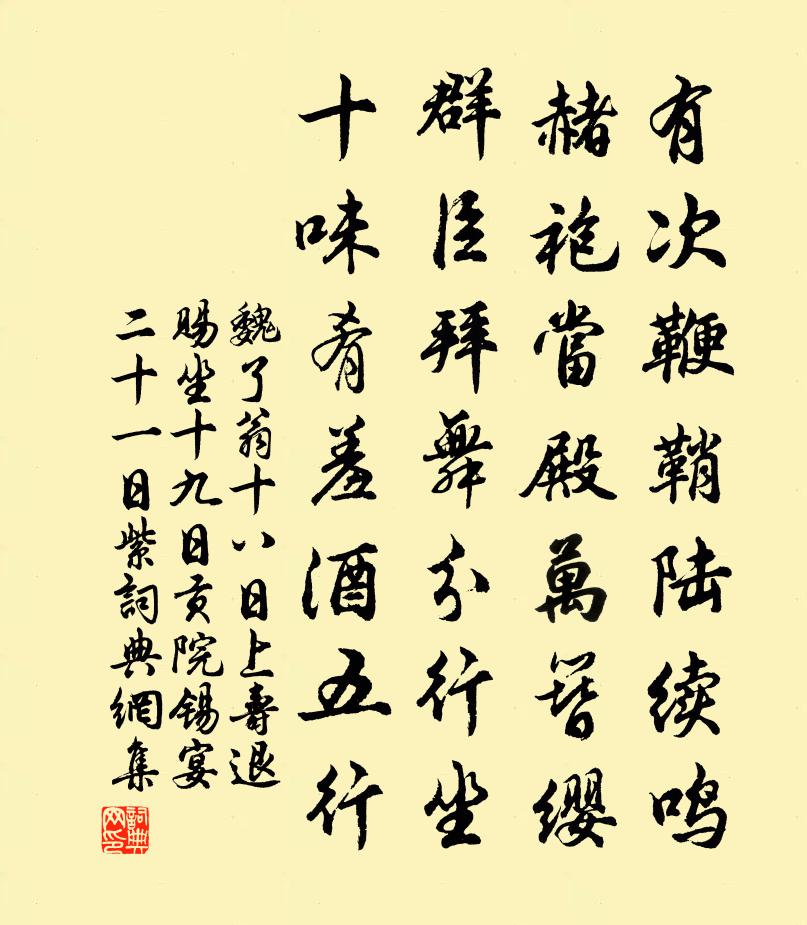 有次鞭鞘陆续鸣
赭袍當殿萬簪缨
群臣拜舞分行坐
十味肴羞酒五行
魏了翁十八日上壽退
賜坐十九日贡院锡宴
二十一日紫詞典網集
詞典
网印